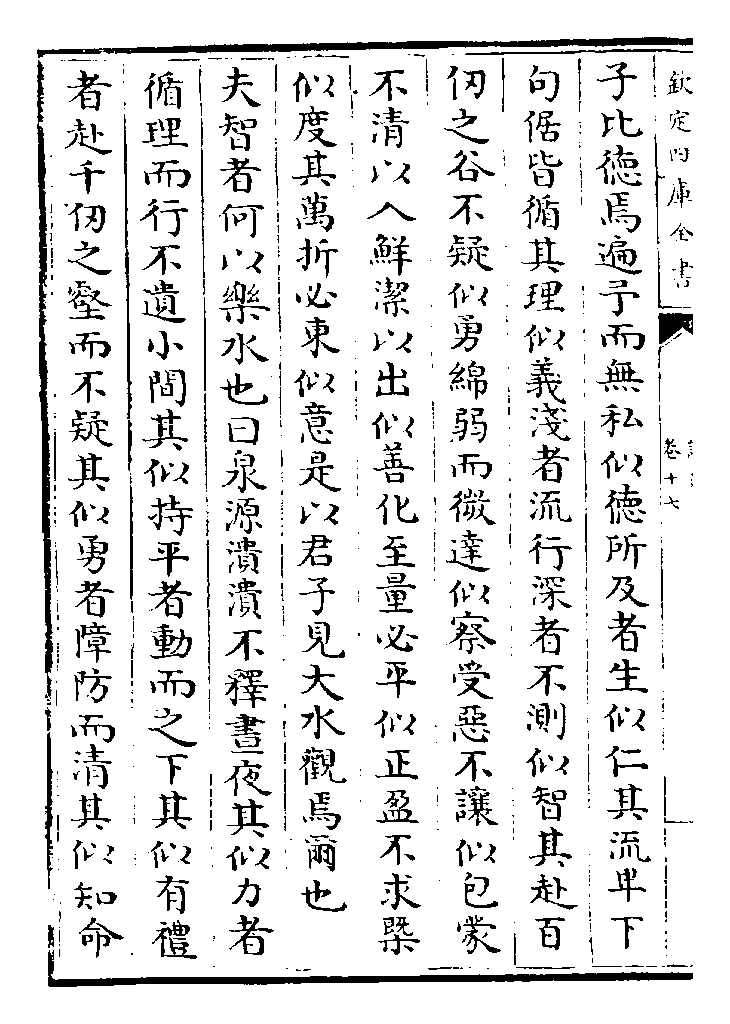 欽定四庫全書
卷十七
子比徳焉遍予而無私似徳所及者生似仁其流卑下
句倨皆循其理似義淺者流行深者不測似智其赴百
仞之谷不疑似勇綿弱而微達似察受惡不讓似包蒙
不清以入鮮潔以出似善化至量必平似正盈不求槩
似度其萬折必東似意是以君子見大水觀焉爾也
夫智者何以樂水也曰泉源潰潰不釋晝夜其似力者
循理而行不遺小間其似持平者動而之下其似有禮
者赴千仞之壑而不疑其似勇者障防而清其似知命